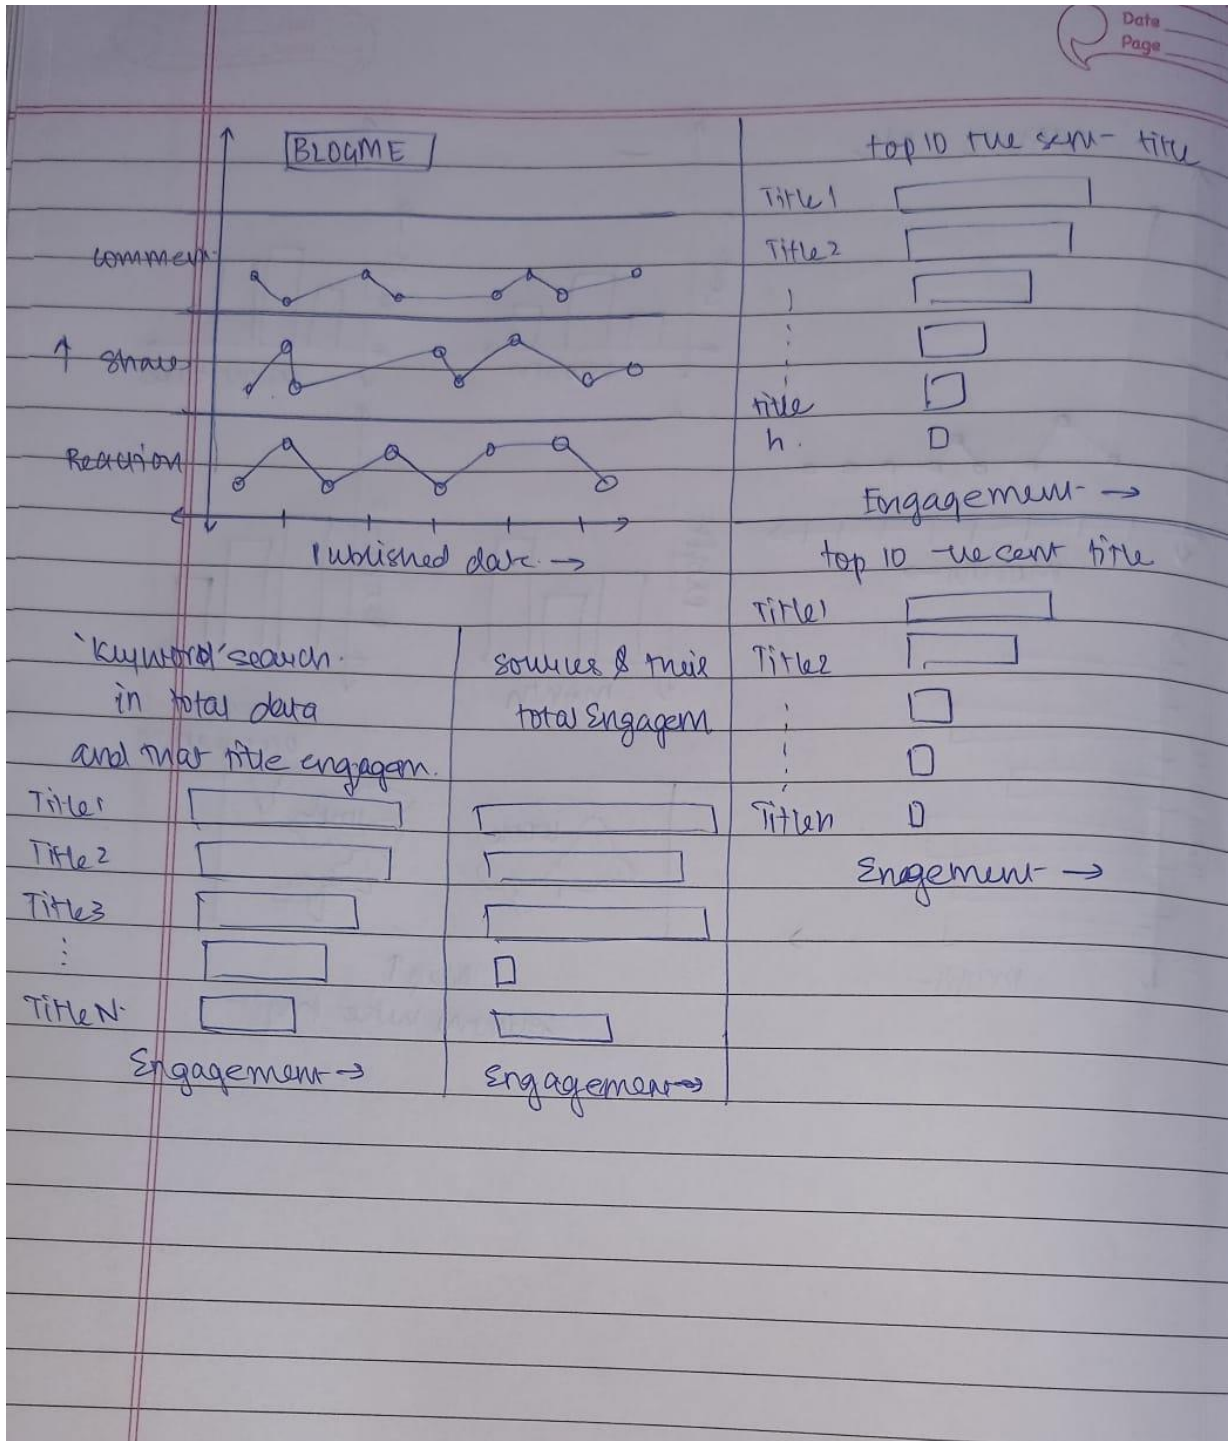 Date
Page
BLOGME
Comment
↑ Share
Reaction
Published date →
top 10 +ve sent- title
Title1
Title2
title
n.
Engagement →
top 10 -ve sent title
Title1
Title2
Titlen
Enagement →
'Keyword' search.
in total data
and that title engagem.
Title1
Title2
Title3
Title N.
Engagement →
sources & their
total Engagem
Engagement →